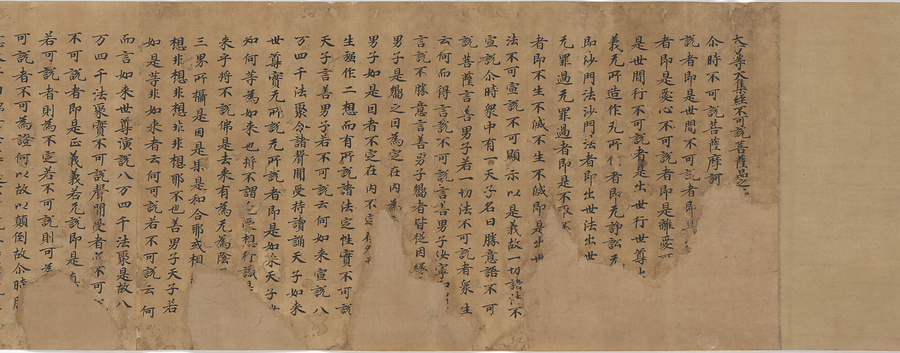 大方等大集經不可說菩薩品之一
尒時不可說菩薩摩訶
說者即是世間不可說者即
者即是愛心不可說者即是離愛
是世間行不可說者是出世行世尊
義无所造作无所行者即无諍訟无
即沙門法沙門法者即出世法出世
无罪過无罪過者即是不
者即不生不滅不生不滅即是出世
法不可宣說不可顯示以是義故一切諸法不
宣說尒時衆中有一天子名曰勝意語不可
說菩薩言善男子若一切法不可說者衆生
云何而得言說不可說言善男子汝寧
言說不勝意言善男子嚮者皆從因緣
男子是嚮之因為定在內為
男子如是因者不定在內不定
生強作二想而有所說諸法定性實不可說
天子言善男子若不可說云何如來宣說八
万四千法聚令諸聲聞受持讀誦天子如來
世尊實无所說无所說者即是如來天子
如何等為如來也將不謂色受想行識是
來乎將不說佛是去來有為无為陰
三界所攝是因是果是和合耶或相
想非想非想非非想耶不也善男子天子若
如是等非如來者云何可說若不可說云何
而言如來世尊演說八万四千法聚是故八
万四千法聚實不可說聲聞受者不可
不可說者即是正義義若无說即是
若可說者則為不定若不可說則可
可說者不可為證何以故以顛倒故尒時